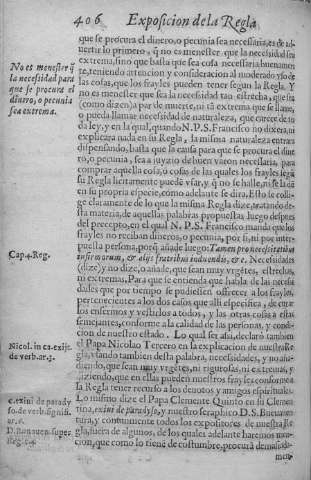 406 Exposicion de la Regla
que se procura el dinero, o pecunia sea necessaria, es de ad-
uertir lo primero, q̃ no es menester que la necesidad sea
extrema, sino que basta que sea cosa necessaria buenamen
te, teniendo attencion y consideracion al moderado vso de
las cosas, que los frayles pueden tener segun la Regla. Y
No es menester q̃
la necesidad para
que se procura el
dinero, o pecunia
sea extrema.
no es menester que sea la necesidad tan estrecha, que sea
(como dizen) a par de muerte, ni tã extrema que se llame,
o pueda llamar necesidad de natura, que carece de to
da ley, y en la qual, quando N. P. S. Francisco no dixera, ni
explicara nada en su Regla, la misma naturaleza entrara
dispensando, basta que la causa para que se procura el dine
ro, o pecunia, sea a juyzio de buen varon necessaria, para
comprar aquella cosa, o cosas de las quales los frayles segũ
su Regla licitamente puedẽ vsar, y q̃ no se hallan, ni se dã
en su propria especie, como adelante se dira. Esto se coli-
ge claramente de lo que la misma Regla dize, tratando des-
ta materia, de aquellas palabras propuestas, luego despues
del precepto, en el qual N. P. S. Francisco manda que los
frayles no reciban dineros, o pecunia, por si, ni por inter-
puesta persona, porq̃ añade luego: Tamen pro necessitatibus
infirmorum, & alijs fratribus induendis, &c. Necesidades
Cap. 4. Reg.
(dize) y no dize, o añade, que sean muy vrgẽtes, estrechas,
ni extremas, Para que se entienda que habla de las necesi
dades que por tiempo se pudiesen offrecer a los frayles,
pertenecientes a los dos casos que alli especifica, de curar
los enfermos y vestirlos a todos, y a las otras cosas a estas
semejantes, conforme a la calidad de las personas, y condi-
cion de nuestro estado. Lo qual ser asi, declaro tambien
Nicol. in ca. exijt.
de verb. ar. 3.
el Papa Nicolao Tercero en la explicacion de nuestra Re
gla, vsando tambien desta palabra, necesidades, y no aña-
diendo, que sean muy vrgẽtes, ni rigurosas, ni extremas, y
diziendo, que en ellas pueden nuestros frayles conforme a
la Regla tener recurso a los deuotos y amigos espirituales.
Lo mismo dize el Papa Clemente Quinto en su Clemen
c. exiui de parady
so. de verb. signifi.
ar. 6.
D. Bonauen. super
Reg. c. 4.
tina, exiui de paradyso, y nuestro seraphico D. S. Buenauen
tura, y communmente todos los expositores de nuestra Re
gla, fuera de algunos, de los quales adelante haremos men-
cion, que como lo tiene de costumbre, procura demasiada
men-